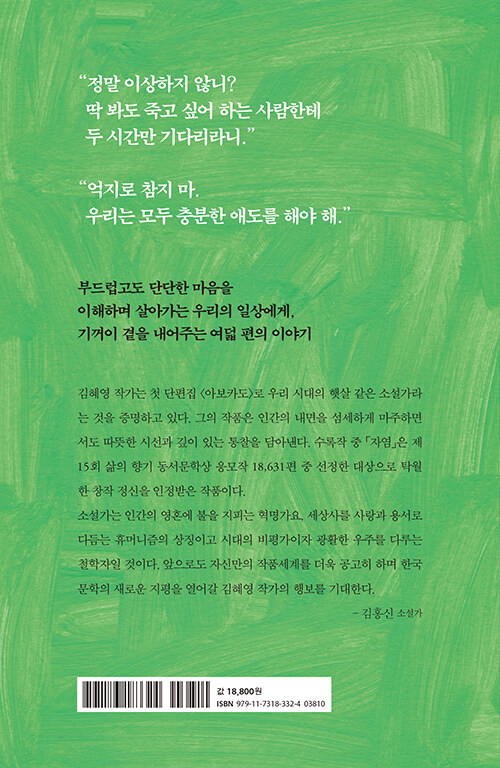 “정말 이상하지 않니?
딱 봐도 죽고 싶어 하는 사람한테
두 시간만 기다리라니.”
“억지로 참지 마.
우리는 모두 충분한 애도를 해야 해.”
부드럽고도 단단한 마음을
이해하며 살아가는 우리의 일상에게,
기꺼이 곁을 내어주는 여덟 편의 이야기
김혜영 작가는 첫 단편집 〈아보카도〉로 우리 시대의 햇살 같은 소설가라
는 것을 증명하고 있다. 그의 작품은 인간의 내면을 섬세하게 마주하면
서도 따뜻한 시선과 깊이 있는 통찰을 담아낸다. 수록작 중 「자염」은 제
15회 삶의 향기 동서문학상 응모작 18,631편 중 선정한 대상으로 탁월
한 창작 정신을 인정받은 작품이다.
소설가는 인간의 영혼에 불을 지피는 혁명가요, 세상사를 사랑과 용서로
다듬는 휴머니즘의 상징이고 시대의 비평가이자 광활한 우주를 다루는
철학자일 것이다. 앞으로도 자신만의 작품세계를 더욱 공고히 하며 한국
문학의 새로운 지평을 열어갈 김혜영 작가의 행보를 기대한다.
– 김홍신 소설가
값 18,800원
ISBN 979-11-7318-332-4 03810